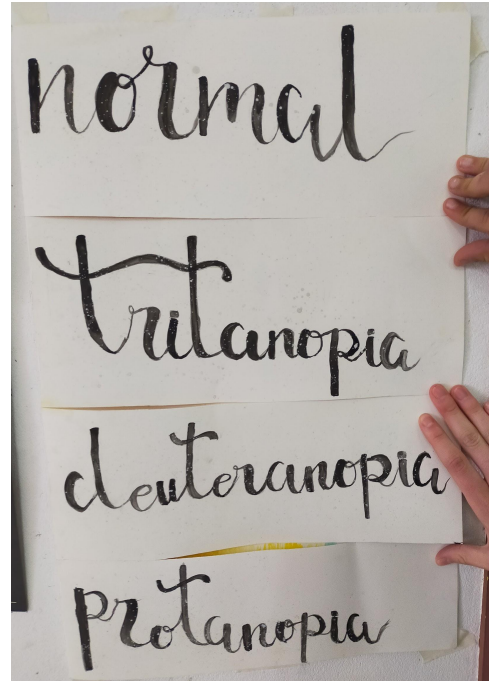 normal
tritanopia
deuteranopia
protanopia